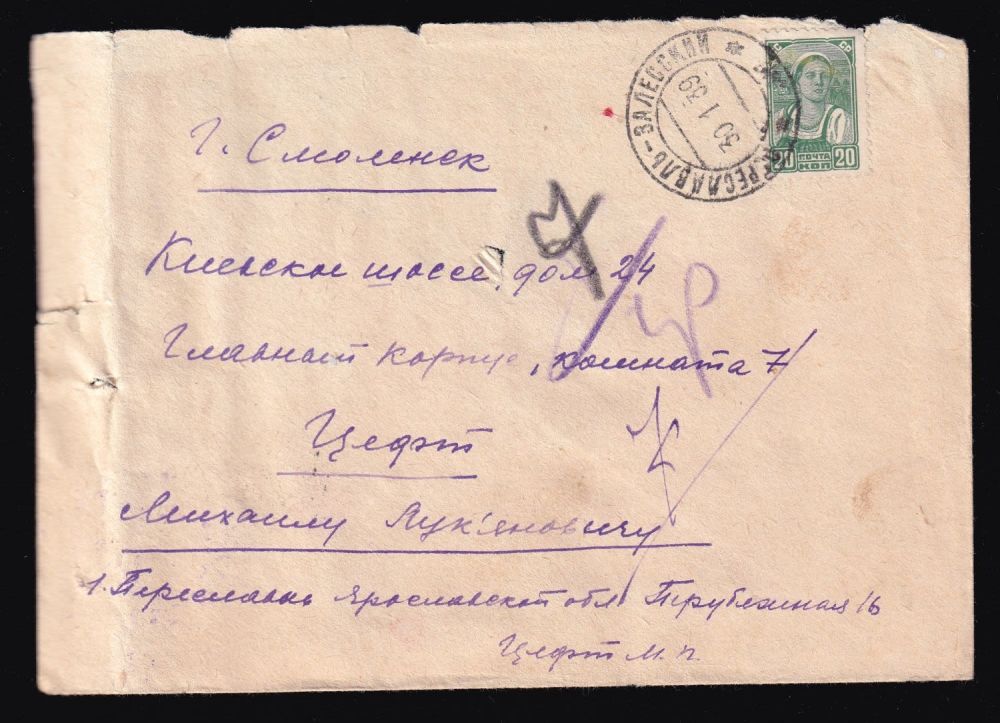 ПЕРЕСЛАВЛЬ-ЗАЛЕССКИЙ
30 1 39
20 ПОЧТА 20
КОП
г. Смоленск
Киевское шоссе, дом 24
Главный корпус, комната 7
Цефт
Михаилу Лук'яновичу
г. Переславль Ярославской обл Трубежная 16
Цефт М. П.